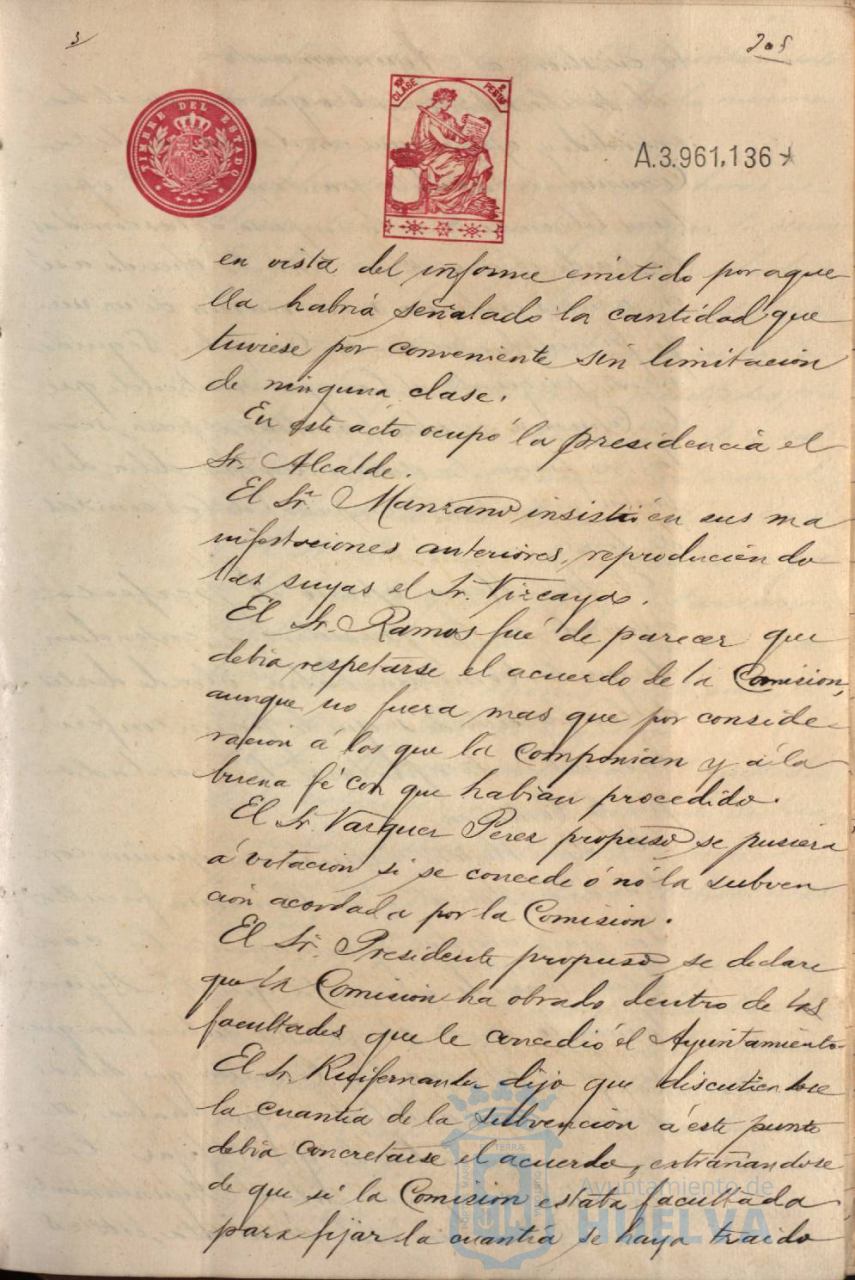 3
205
TIMBRE DEL ESTADO
10ª CLASE
2 PESETAS
A.3.961,136
en vista del informe emitido por aque
lla habria señalado la cantidad que
tuviese por conveniente sin limitacion
de ninguna clase.
En este acto ocupó la presidencia el
Sr. Alcalde.
El Sr. Manzano insistió en sus ma
nifestaciones anteriores, reproduciendo
las suyas el Sr. Vizcaya.
El Sr. Ramos fué de parecer que
debia respetarse el acuerdo de la Comision,
aunque no fuera mas que por conside-
racion á los que la componian y á la
buena fé con que habian procedido.
El Sr. Vazquez Perez propuso se pusiera
á votacion si se concede ó nó la subven
cion acordada por la Comision.
El Sr. Presidente propuso se declare
que la Comision ha obrado dentro de las
facultades que le concedió el Ayuntamiento.
El Sr. Ruifernandez dijo que discutiendose
la cuantia de la subvencion á este punto
debia concretarse el acuerdo, extrañandose
de que si la Comision estaba facultada
para fijar la cuantia se haya traido
Ayuntamiento de
HUELVA